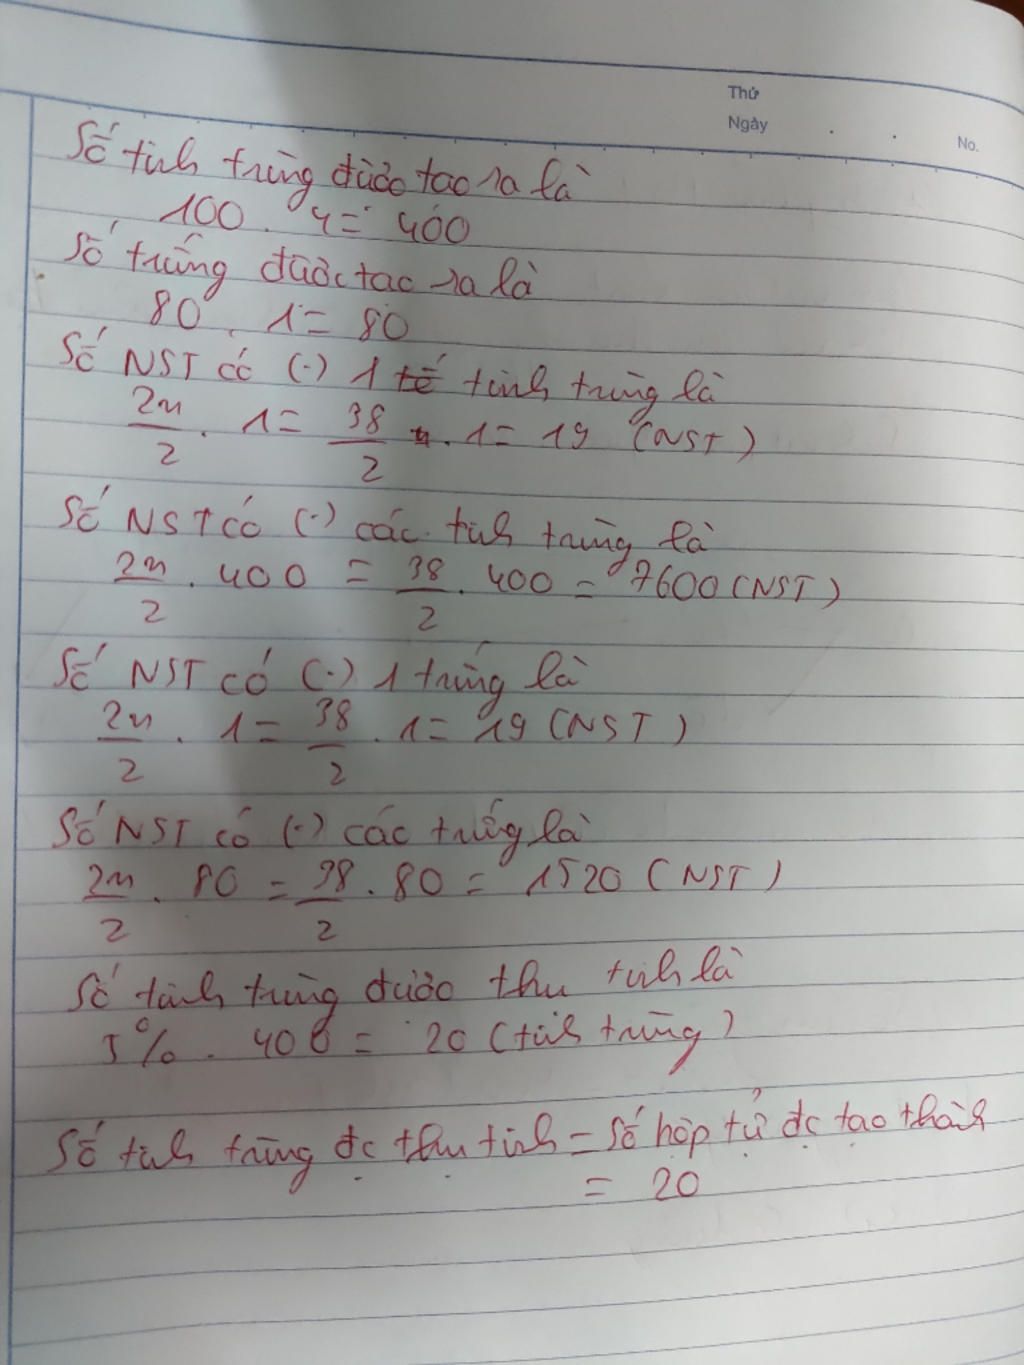 Thứ
Ngày . . No.
Số tinh trùng được tạo ra là
100 . 4 = 400
Số trứng được tạo ra là
80 . 1 = 80
Số NST có (.) 1 tế tinh trùng là
2n/2 . 1 = 38/2 . 1 = 19 (NST)
Số NST có (.) các tinh trùng là
2n/2 . 400 = 38/2 . 400 = 7600 (NST)
Số NST có (.) 1 trứng là
2n/2 . 1 = 38/2 . 1 = 19 (NST)
Số NST có (.) các trứng là
2n/2 . 80 = 38/2 . 80 = 1520 (NST)
Số tinh trùng được thụ tinh là
5% . 400 = 20 (tinh trùng)
Số tinh trùng đc thụ tinh = Số hợp tử đc tạo thành
= 20